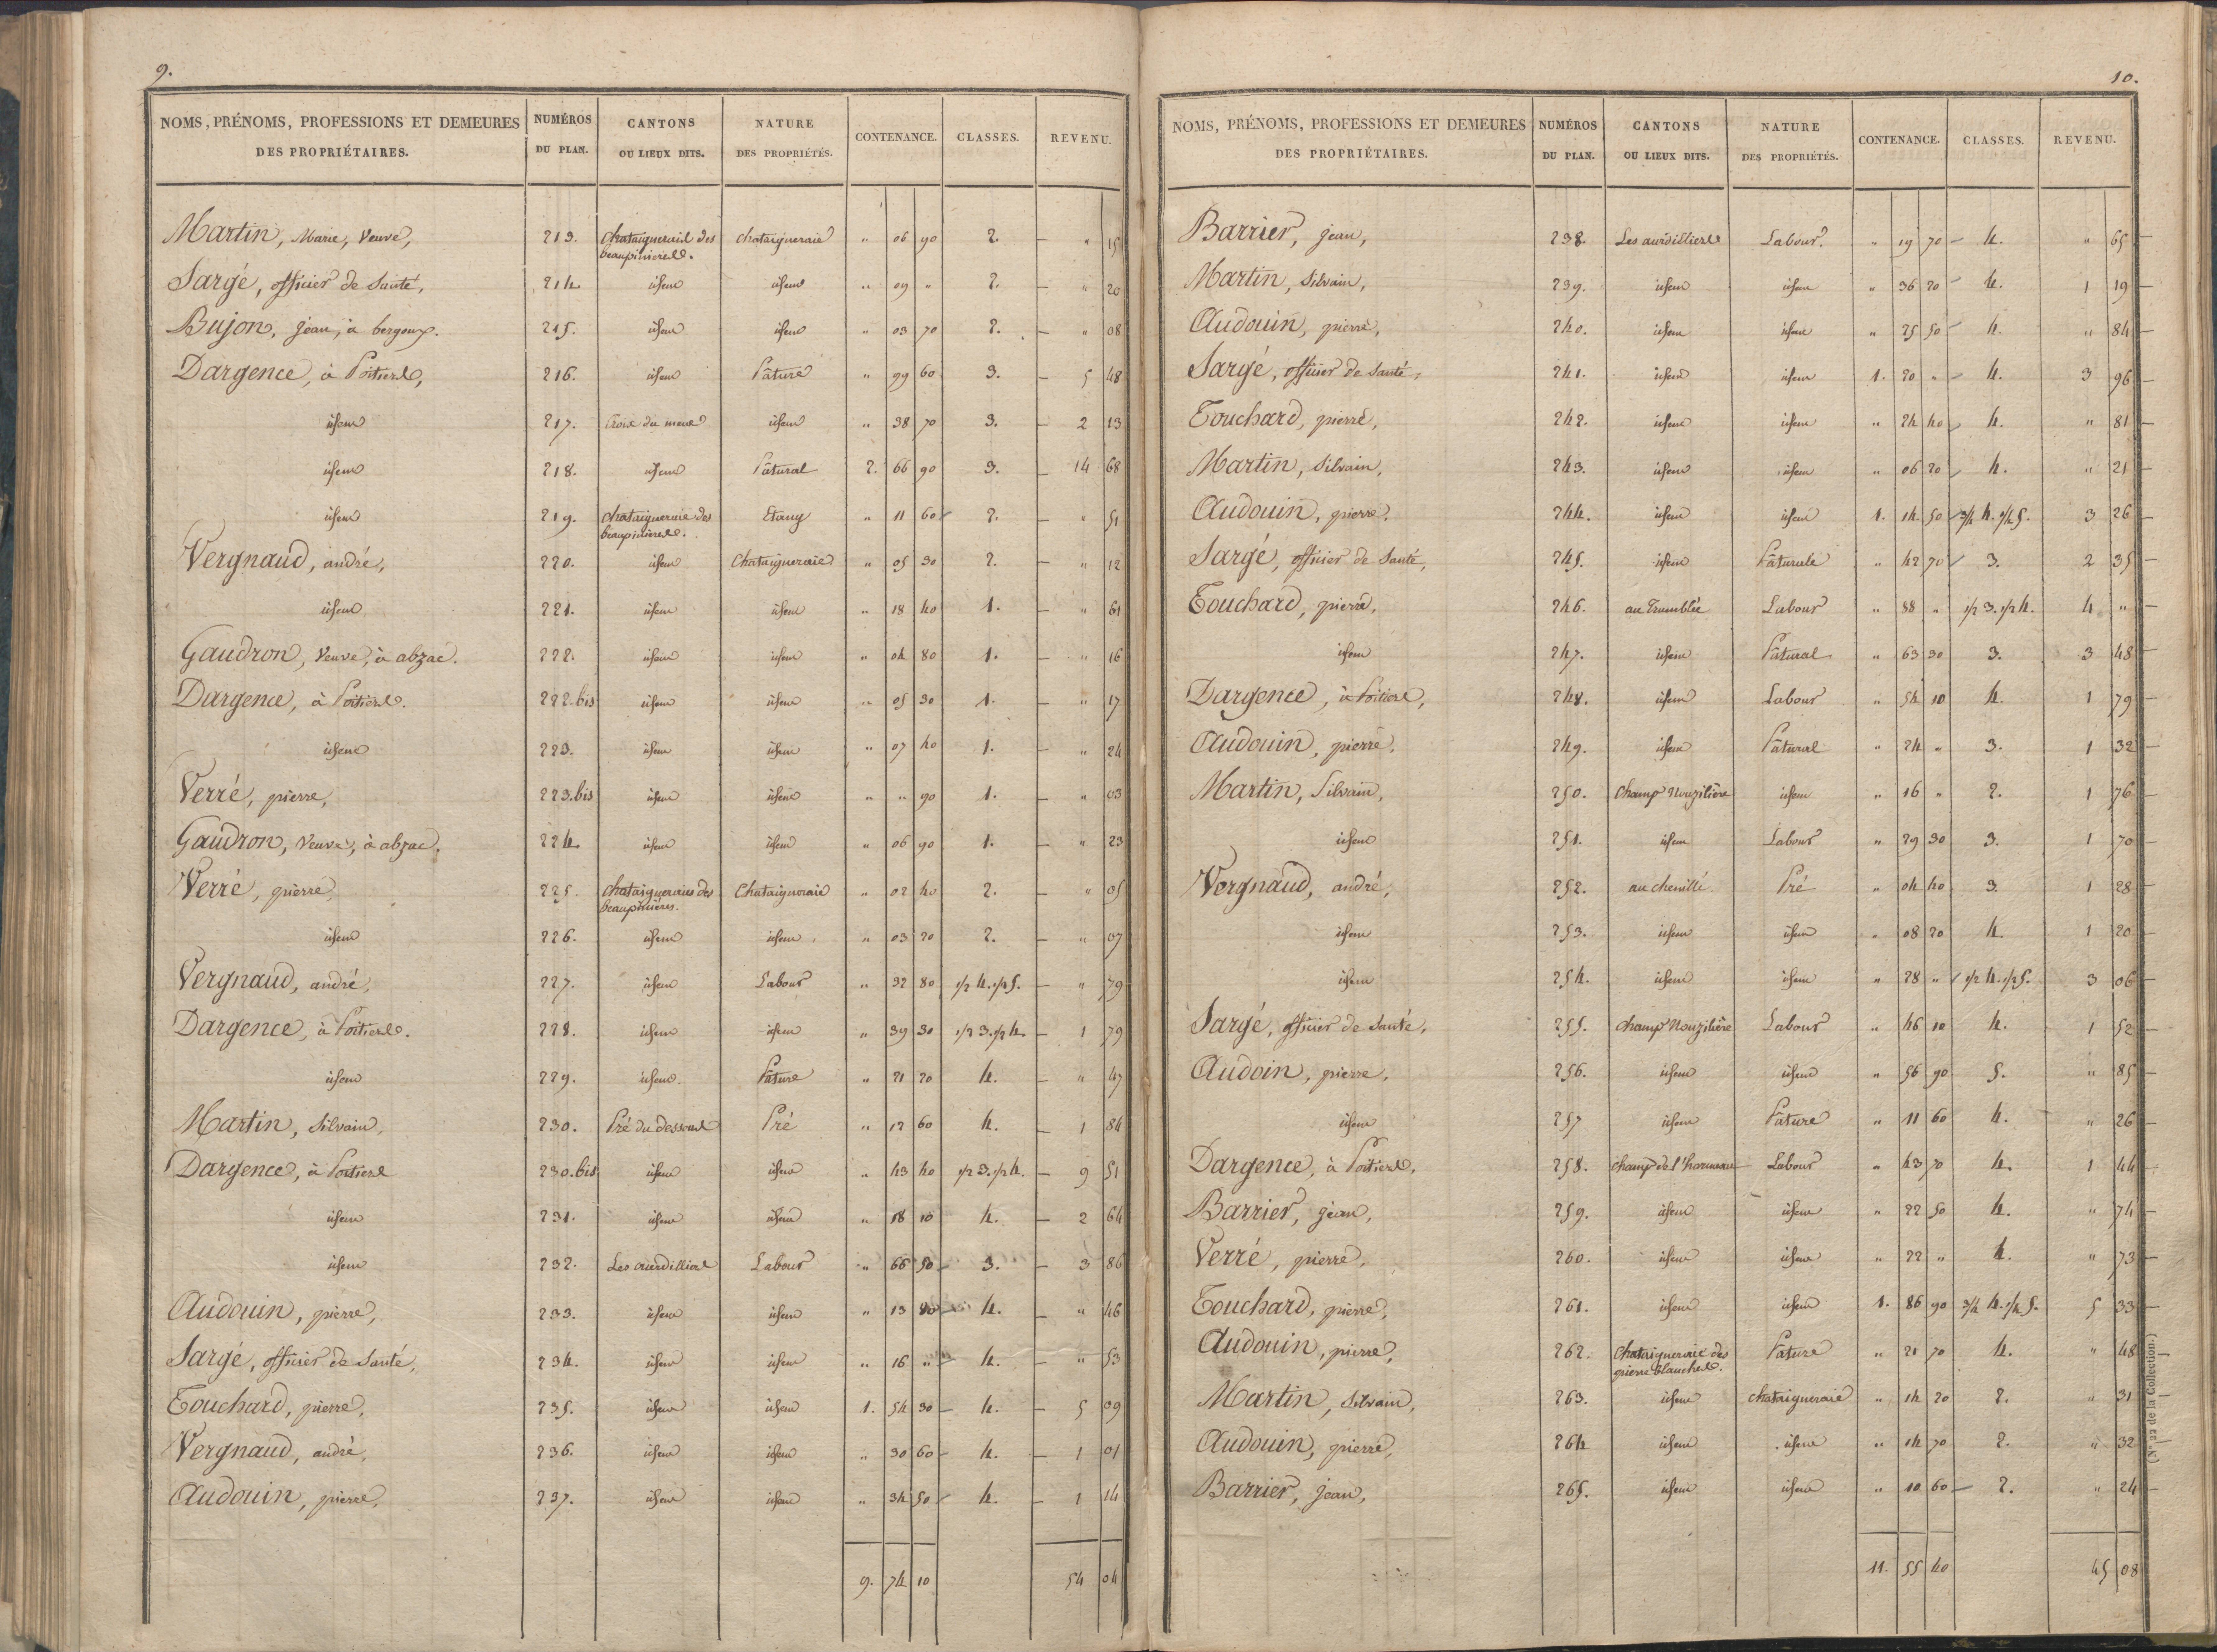 9.
NOMS, PRÉNOMS, PROFESSIONS ET DEMEURES DES PROPRIÉTAIRES. NUMÉROS DU PLAN. CANTONS OU LIEUX DITS. NATURE DES PROPRIÉTÉS. CONTENANCE. CLASSES. REVENU.
Martin, Marie, Veuve, 213. chataigneraie des beaupinieres. chataigneraie " 06 90 2. — " 15
Sargé, officier de Santé, 214 idem idem " 09 " 2. — " 20
Bujon, jean, à bergoux. 215. idem idem " 03 70 2. — " 08
Dargence, à Poitiers, 216. idem Pâture " 99 60 3. — 5 48
idem 217. Croix du idem " 38 70 3. — 2 13
idem 218. idem Pâtural 2. 66 90 3. — 14 68
idem 219. chataigneraie des beaupinieres. Etang " 11 60 2. — " 51
Vergnaud, andré, 220. idem Chataigneraie " 05 30 2. — " 12
idem 221. idem idem " 18 40 1. — " 61
Gaudron, Veuve, à abzac. 222. idem idem " 04 80 1. — " 16
Dargence, à Poitiers. 222.bis idem idem " 05 30 1. — " 17
idem 223. idem idem " 07 40 1. — " 24
Verré, pierre, 223.bis idem idem " " 90 1. — " 03
Gaudron, Veuve, à abzac. 224 idem idem " 06 90 1. — " 23
Verré, pierre, 225. chataigneraies des beaupinières. Chataigneraie " 02 40 2. — " 05
idem 226. idem idem " 03 20 2. — " 07
Vergnaud, andré, 227. idem Labour " 32 80 1/2 4. 1/2 5. — " 79
Dargence, à Poitiers. 228. idem idem " 39 30 1/2 3. 1/2 4. — 1 79
idem 229. idem Pâture " 21 20 4. — " 47
Martin, Silvain, 230. Pré du dessous Pré " 12 60 4. — 1 84
Dargence, à Poitiers 230.bis idem idem " 43 40 1/2 3. 1/2 4. — 9 51
idem 231. idem idem " 18 10 4. — 2 64
idem 232. Les aurdillieres Labour " 66 50 3. — 3 86
Audouin, pierre, 233. idem idem " 13 4. — " 46
Sargé, officier de Santé, 234. idem idem " 16 " 4. — " 53
Touchard, pierre, 235. idem idem 1. 54 30 4. — 5 09
Vergnaud, andré, 236. idem idem " 30 60 4. — 1 01
Audouin, pierre, 237. idem idem " 34 50 4. — 1 14
9. 74 10 54 04
10.
NOMS, PRÉNOMS, PROFESSIONS ET DEMEURES DES PROPRIÉTAIRES. NUMÉROS DU PLAN. CANTONS OU LIEUX DITS. NATURE DES PROPRIÉTÉS. CONTENANCE. CLASSES. REVENU.
Barrier, jean, 238. Les aurdillieres Labour. " 19 70 4. " 65
Martin, Silvain, 239. idem idem " 36 20 4. 1 19
Audouin, pierre, 240. idem idem " 25 50 4. " 84
Sargé, officier de Santé, 241. idem idem 1. 20 " 4. 3 96
Touchard, pierre, 242. idem idem " 24 40 4. " 81
Martin, Silvain, 243. idem idem " 06 20 4. " 21
Audouin, pierre, 244. idem idem 1. 14 50 3/4 4. 1/4 5. 3 26
Sargé, officier de Santé, 245. idem Pâturale " 42 70 3. 2 35
Touchard, pierre, 246. au Tremblée Labour " 88 " 1/2 3. 1/2 4. 4 "
idem 247. idem Pâtural " 63 30 3. 3 48
Dargence, à Poitiers, 248. idem Labour " 54 10 4. 1 79
Audouin, pierre, 249. idem Pâtural " 24 " 3. 1 32
Martin, Silvain, 250. Champ Nougilière idem " 16 " 2. 1 76
idem 251. idem Labour " 29 30 3. 1 70
Vergnaud, andré, 252. au chenillé Pré " 04 40 3. 1 28
idem 253. idem idem " 08 20 4. 1 20
idem 254. idem idem " 28 " 1/2 4. 1/2 5. 3 06
Sargé, officier de Santé, 255. champ Nougilière Labour " 46 10 4. 1 52
Audoin, pierre, 256. idem idem " 56 90 5. " 85
idem 257 idem Pâture " 11 60 4. " 26
Dargence, à Poitiers, 258. champ de l'hormeau Labour " 43 70 4. 1 44
Barrier, jean, 259. idem idem " 22 50 4. " 74
Verré, pierre, 260. idem idem " 22 " 4. " 73
Touchard, pierre, 261. idem idem 1. 86 90 3/4 4. 1/4 5. 5 33
Audouin, pierre, 262. Chataigneraie des pierre blanches. Pâture " 21 70 4. " 48
Martin, Silvain, 263. idem chataigneraie " 14 20 2. " 31
Audouin, pierre, 264 idem idem " 14 70 2. " 32
Barrier, jean, 265. idem idem " 10 60 2. " 24
11. 55 40 45 08
(N° 22 de la Collection.)